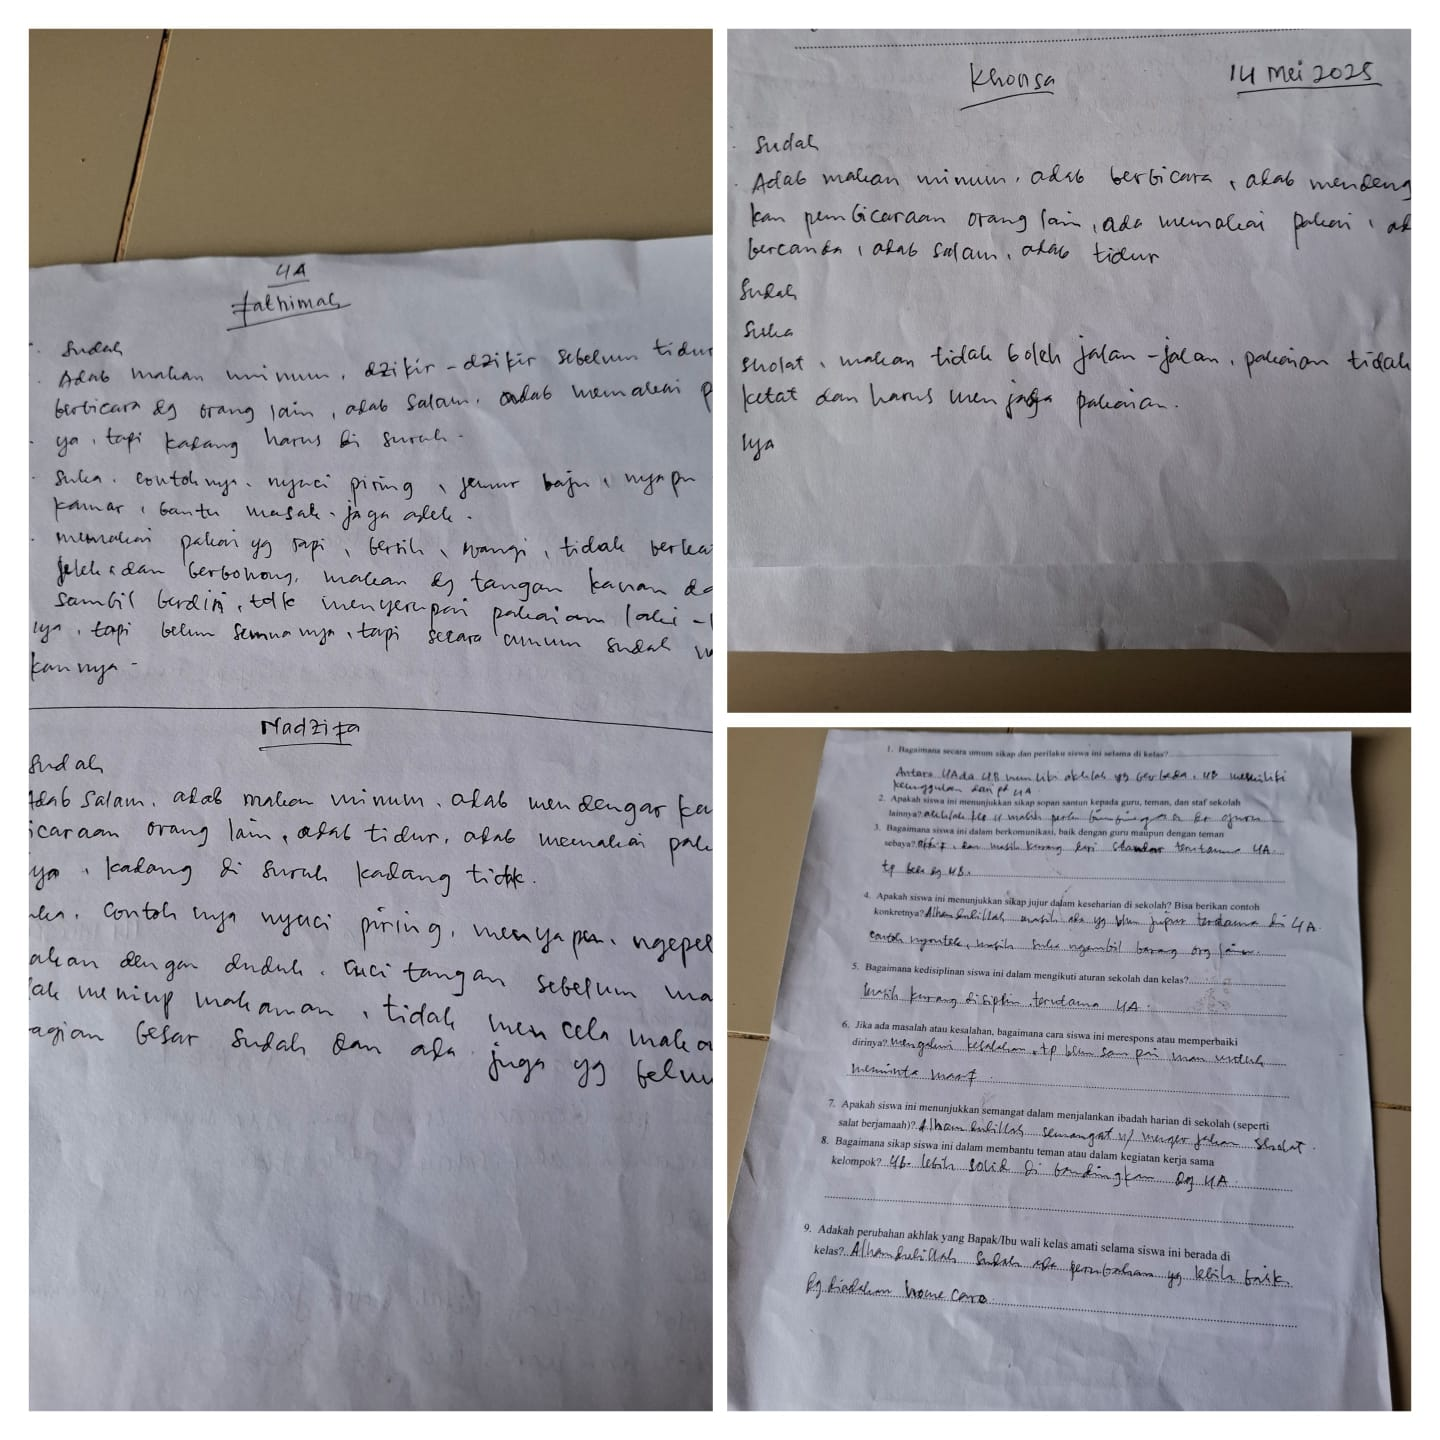 4A
Fathimah
Sudah
Adab makan minum, dzikir-dzikir sebelum tidur
berbicara dg orang lain, adab salam, adab memakai p
ya, tapi kadang harus di suruh.
Suka. contohnya. nyuci piring, jemur baju, nyapu
kamar, bantu masak. jaga adek.
memakai pakai yg rapi, bersih, wangi, tidak berka
jelek dan berbohong, makan dg tangan kanan da
sambil berdiri, tdk menyerupai pakaian laki-l
iya, tapi belum semua nya, tapi secara umum sudah m
kannya.
Nadzifa
Sudah
Adab salam, adab makan minum, adab mendengar ka
icaraan orang lain, adab tidur, adab memakai pak
ya, kadang di suruh kadang tidk.
ka. contoh nya nyuci piring, menyapu, ngepel
akan dengan duduk. cuci tangan sebelum ma
ak meniup makanan, tidak mencela maka
agian besar sudah dan ada juga yg belum
Khonsa 14 Mei 2025
Sudah
Adab makan minum, adab berbicara, adab mendeng
kan pembicaraan orang lain, ada memakai pakai, ad
bercanda, adab salam, adab tidur
Sudah
Suka
Sholat, makan tidak boleh jalan-jalan, pakaian tidak
ketat dan harus menjaga pakaian.
Iya
1. Bagaimana secara umum sikap dan perilaku siswa ini selama di kelas?
Antara 4A da 4B memiliki akhlak yg berbeda, 4B memiliki
keunggulan dari pd 4A
2. Apakah siswa ini menunjukkan sikap sopan santun kepada guru, teman, dan staf sekolah
lainnya? akhlak masih perlu
3. Bagaimana siswa ini dalam berkomunikasi, baik dengan guru maupun dengan teman
sebaya? dan masih kurang dari standar terutama 4A.
tp beda dg 4B.
4. Apakah siswa ini menunjukkan sikap jujur dalam keseharian di sekolah? Bisa berikan contoh
konkretnya? Alhamdulillah masih ada yg blm jujur terutama di 4A.
contoh nyontek, masih suka ngambil barang org lain.
5. Bagaimana kedisiplinan siswa ini dalam mengikuti aturan sekolah dan kelas?
Masih kurang disiplin terutama 4A.
6. Jika ada masalah atau kesalahan, bagaimana cara siswa ini merespons atau memperbaiki
dirinya? mengakui kesalahan, tp blm sampai mau untuk
meminta maaf
7. Apakah siswa ini menunjukkan semangat dalam menjalankan ibadah harian di sekolah (seperti
salat berjamaah)? Alhamdulillah semangat u/ mengerjakan sholat.
8. Bagaimana sikap siswa ini dalam membantu teman atau dalam kegiatan kerja sama
kelompok? 4B lebih solid di bandingkan dg 4A
9. Adakah perubahan akhlak yang Bapak/Ibu wali kelas amati selama siswa ini berada di
kelas? Alhamdulillah sudah ada perubahan yg lebih baik
dg diadakan home care